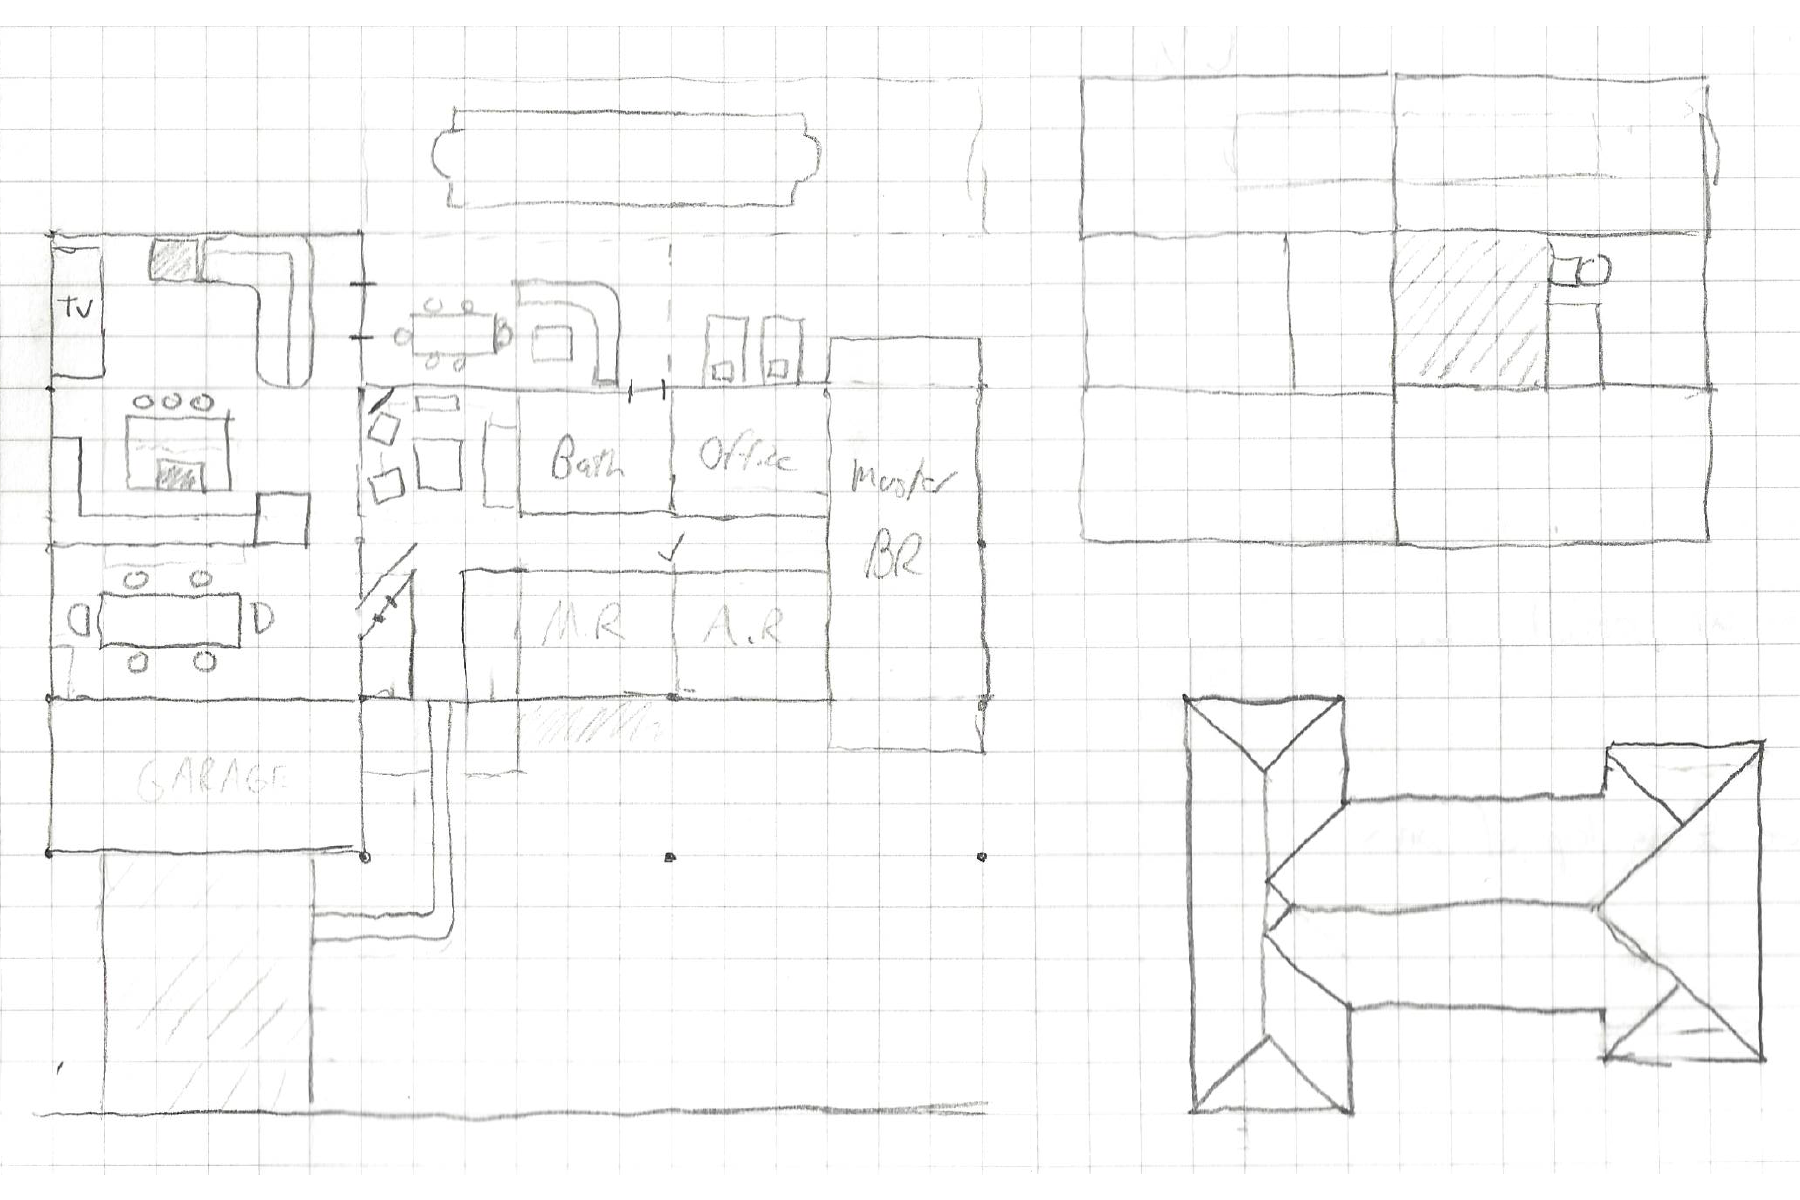 TV
Bath
Office
Master
BR
M.R
A.R
GARAGE